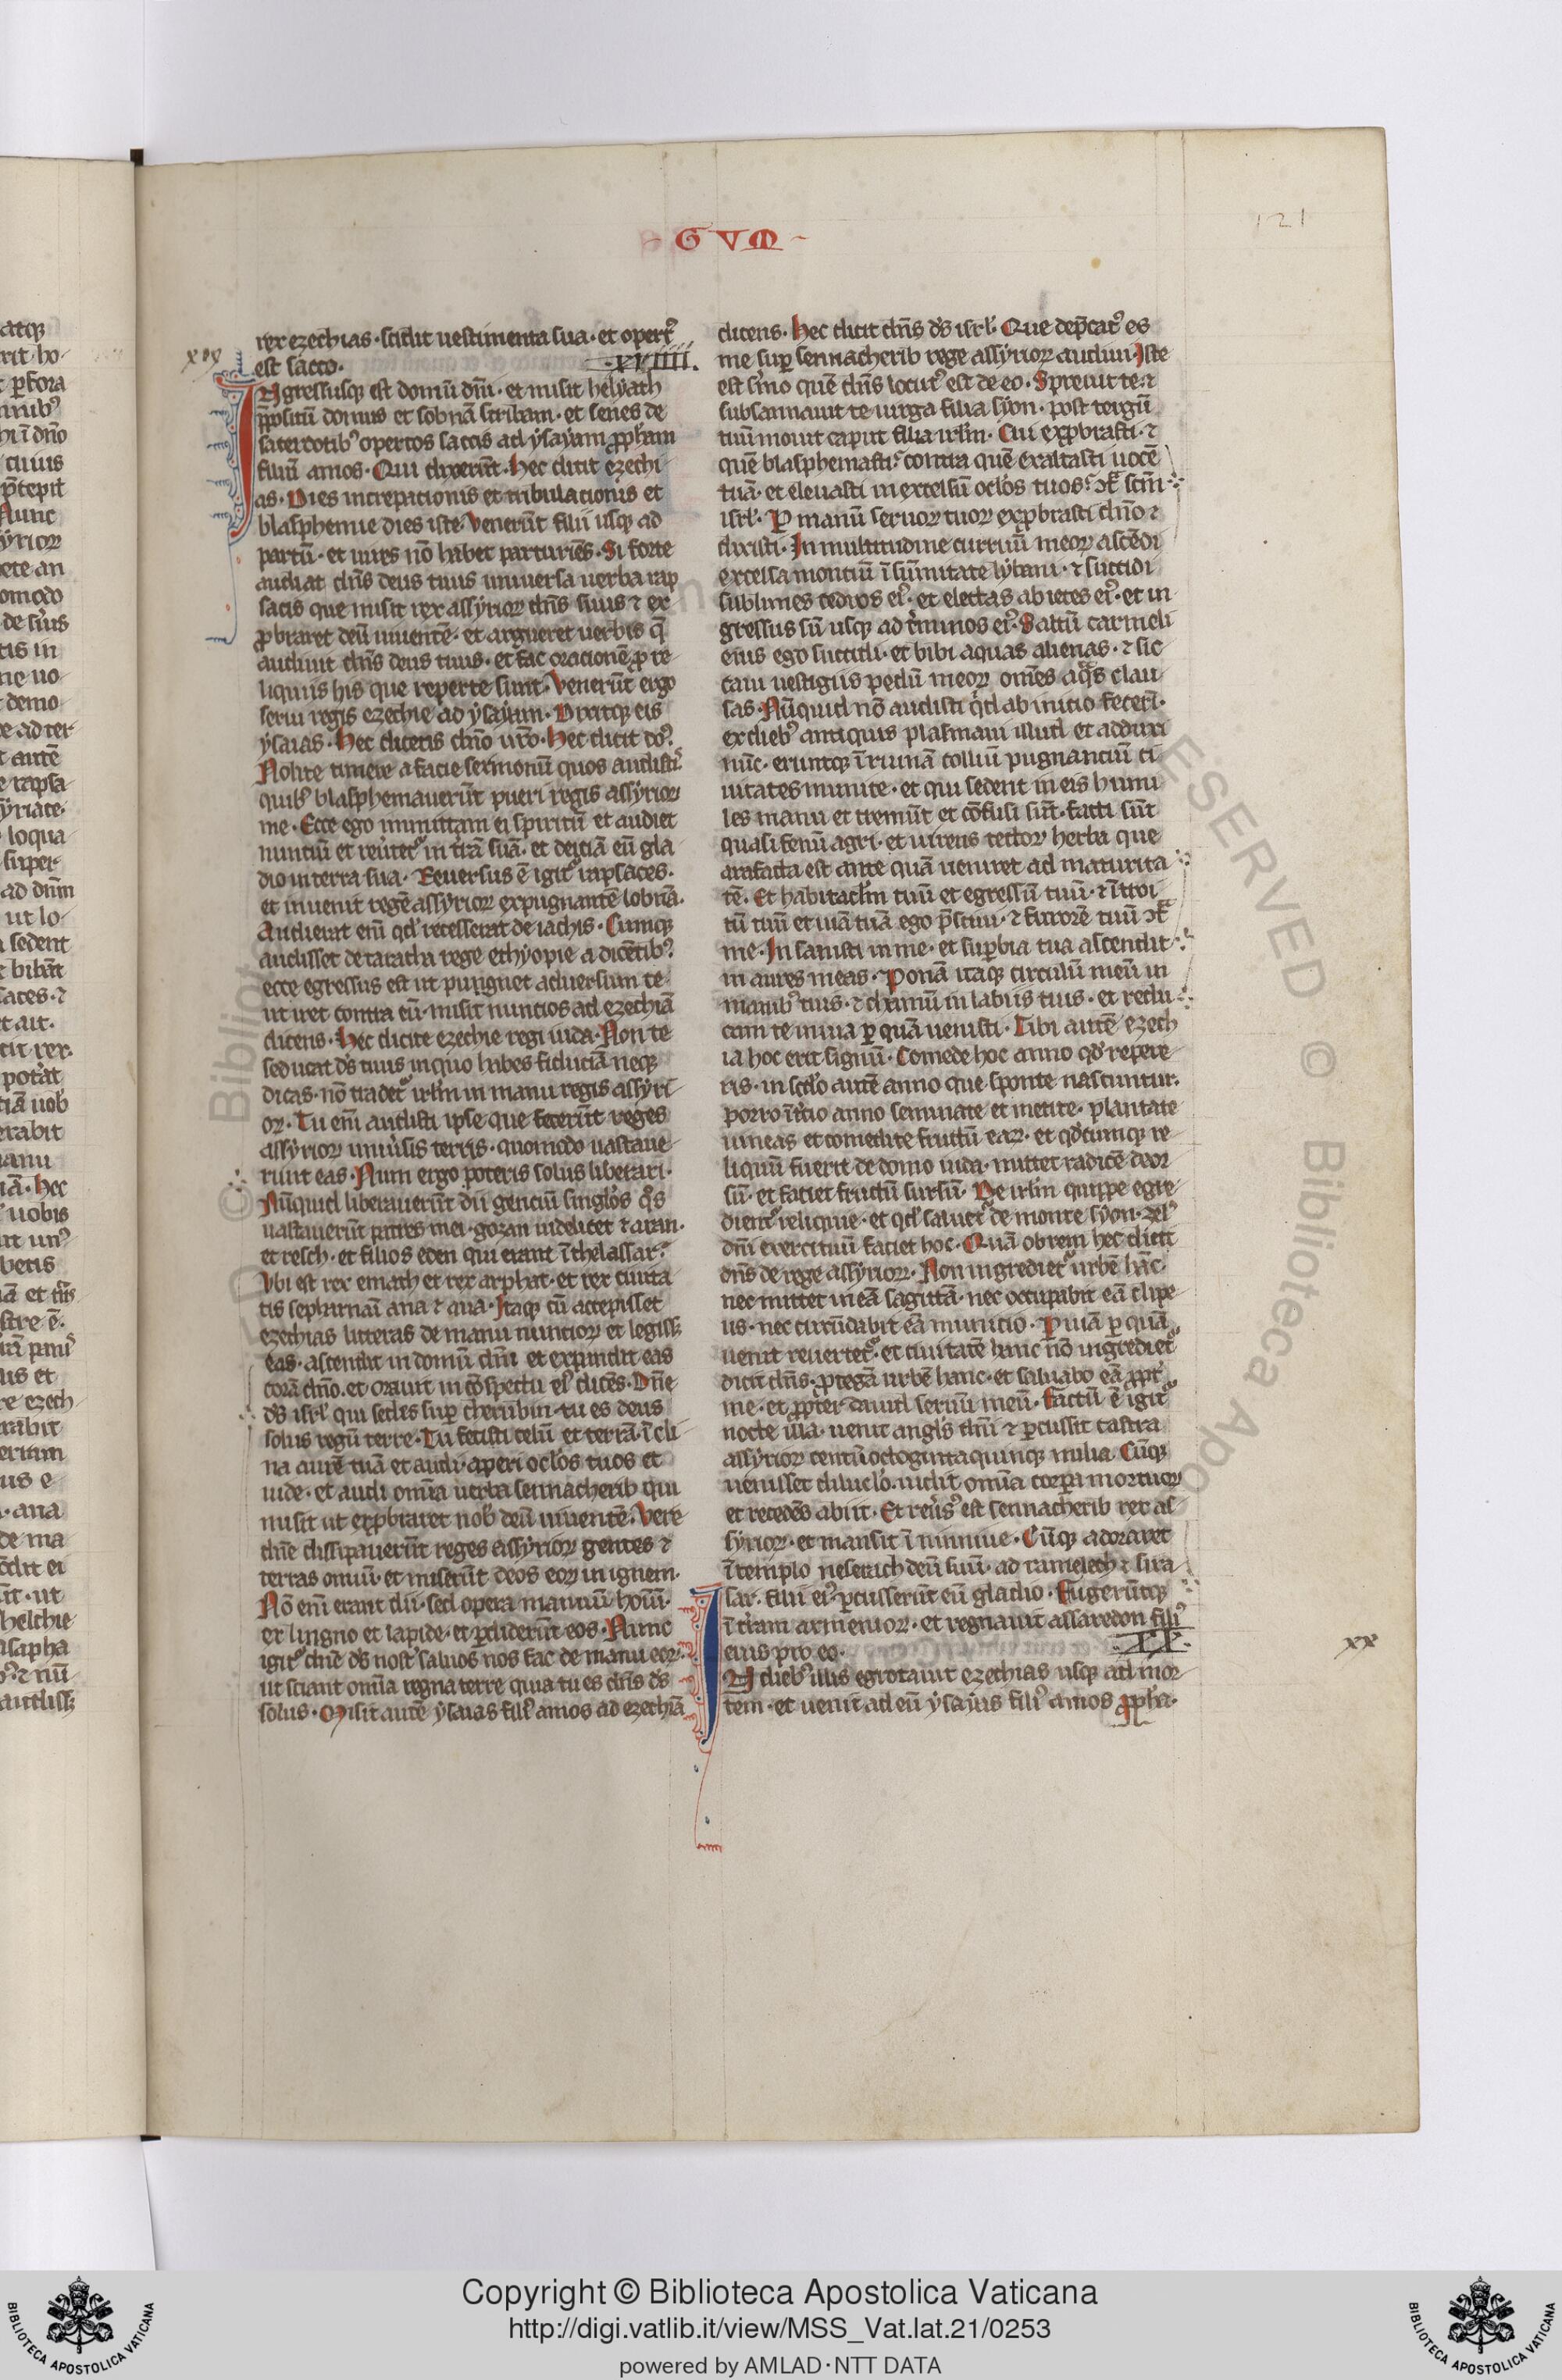 G V M
121
rex ezechias · scidit uestimenta sua · et opert᷒
est sacco.
xviiii.
xix
Ingressusq; est domū dn̄i · et misit helyach
p̄positū domus et sobnā scribam · et senes de
sacerdotib᷒ opertos saccis ad ysayam ꝓph̄am
filiū amos · Qui dixerūt · Hec dicit ezechi
as · Dies increpationis et tribulacionis et
blasphemie dies iste · Venerūt filii usq; ad
partū · et uires nō habet parturiēs · Si forte
audiat dn̄s deus tuus uniuersa uerba rap
sacis que misit rex assyrioꝝ dn̄s suus ⁊ ex
ꝓbraret deū uiuentē · et argueret uerbis q̄
audiuit dn̄s deus tuus · et fac oracionē ꝓ re
liquiis his que reperte sunt · Venerūt ergo
serui regis ezechie ad ysayam · Dixitq; eis
ysaias · Hec dicetis dn̄o vr̄o · Hec dicit do᷒.
Nolite timere a facie sermonū quos audisti᷒
quib᷒ blasphemauerūt pueri regis assyrioꝝ
me · Ecce ego inmittam ei spiritū et audiet
nunciū et reuertet᷒ in t̄rā suā · et deiciā eū gla
dio in terra sua · Reuersus ē igit᷒ rapsaces ·
et inuenit regē assyrioꝝ expugnantē lobnā ·
Audierat eni qd̕ recesserat de lachis · Cumq;
audisset de taracha rege ethyopie a dicētib᷒
ecce egressus est ut pugnet aduersum te
ut iret contra eū · misit nuncios ad ezechiā
dicens · Hec dicite ezechie regi iuda · Non te
seducat ds̄ tuus in quo habes fiduciā neq;
dicas · nō tradet᷒ irl̄m in manu regis assyri
oꝝ · Tu eni audisti ipse que fecerūt reges
assyrioꝝ uniuersis terris · quomodo uastaue
runt eas · Num ergo poteris solus liberari ·
Nūquid liberauerūt dii genciū singlos q̊s
uastauerūt patres mei · gozan uidelicet ⁊ aran ·
et reseh · et filios eden qui erant ī thelassar᷒
Vbi est rex emath et rex arphat · et rex ciuita
tis sepharuaī ana ⁊ aua · Itaq; cū accepisset
ezechias litteras de manu nuncioꝝ et legiss;
eas · ascendit in domū dn̄i et expandit eas
corā dn̄o · et orauit in cōspectu ei᷒ dicēs · Dn̄e
ds̄ isrl̄ qui sedes sup cherubin · tu es deus
solus regū terre · Tu fecisti celū et terrā · ī cli
na aurē tuā et audi · aperi oclos tuos et
uide · et audi omīa uerba sennacherib qui
misit ut exꝓbraret nob̕ deū uiuentē · Vere
dn̄e dissipauerūt reges assyrioꝝ gentes ⁊
terras omiū · et miserūt deos eoꝝ in ignem ·
Nō eni erant dii · sed opera manuū hoīū ·
ex lingno et lapide · et ꝑdiderūt eos · Nunc
igit᷒ dn̄e ds̄ nost᷒ saluos nos fac de manu eoꝝ ·
ut sciant omīa regna terre quia tu es dn̄s ds̄
solus · Misit autē ysaias fili᷒ amos ad ezechiā
dicens · Hec dicit dn̄s ds̄ isrl̄ · Que dep̄cat᷒ es
me sup sennacherib rege assyrioꝝ audiui · Iste
est s̄mo quē dn̄s locut᷒ est de eo · Spreuit te · ⁊
subsannauit te uirgo filia syon · post tergū
tuū mouit caput filia irl̄m · Cui exꝓbrasti · ⁊
quē blasphemasti᷒ contra quē exaltasti uocē
tuā · et eleuasti in excelsū oclos tuos᷒ ɔt̄ sc̄m
isrl̄ · Ꝑ manū seruoꝝ tuoꝝ exꝓbrasti dn̄o ⁊
dixisti · In multitudine curruū meoꝝ ascēdi
excelsa montiū ī sūmitate lybani · ⁊ succidi
sublimes cedros ei᷒ · et electas abietes ei᷒ · et in
gressus sū usq; ad t̄minos ei᷒ · Saltū carmeli
eius ego succidi · et bibi aquas alienas · ⁊ sic
caui uestigiis pedū meoꝝ om̄es aq̊s clau
sas · Nūquid nō audisti qd̕ ab inicio fecerī ·
ex dieb᷒ antiquis plasmaui illud et adduxi
nūc · eruntq; ī ruinā colliū pugnanciū ci
uitates munite · et qui sedent in eis humi
les manu et tremūt et cōfusi sūt · facti sūt
quasi fenū agri · et uirens tectoꝝ herba que
arefacta est ante quā ueniret ad maturita
tē · Et habitaclm tuū et egressū tuū · ⁊ ītroi
tū tuū et uiā tuā ego p̄sciui · ⁊ furorē tuū ɔt̄
me · Insanisti in me · et supbia tua ascendit
in aures meas · Ponā itaq; circulū meū in
narib᷒ tuis · ⁊ chamū in labiis tuis · et redu
cam te in uia ꝑ quā uenisti · Tibi autē ezech
ia hoc erit signū · Comede hoc anno qd̕ repere
ris · in scd̄o autē anno que sponte nascuntur ·
porro ī t̄cio anno seminate et metite · plantate
uineas et comedite fructū eaꝝ · et qd̕cumq; re
liquū fuerit de domo iuda · mittet radicē deor
sū · et faciet fructū sursū · De irl̄m quippe egre
dient᷒ reliquie · et qd̕ saluet᷒ de monte syon · zel᷒
dn̄i exercituū faciet hoc · Quā obrem hec dicit
dn̄s de rege assyrioꝝ · Non ingrediet᷒ urbē hāc ·
nec mittet in eā sagittā · nec occupabit eā clipe
us · nec circūdabit eā municio · Ꝑ uiā ꝑ quā
uenit reuertet᷒ · et ciuitatē hanc nō ingrediet᷒
dicit dn̄s · ꝓtegā urbē hanc · et saluabo eā ꝓpt᷒
me · et ꝓpter dauid seruū meū · Factū ē igit᷒
nocte illa · uenit angl̄s dn̄i ⁊ ꝑcussit castra
assyrioꝝ centū octogintaquinq; milia · Cūq;
uenisset diluclo · uidit omīa corpa mortuoꝝ
et recedēs abiit · Et reuers᷒ est sennacherib rex as
syrioꝝ · et mansit ī niniue · Cūq; adoraret
ī templo neserach deū suū · ad ramelech ⁊ sira
sar · filii ei᷒ ꝑcusserūt eū gladio · Fugerūtq;
ī t̄ram armenioꝝ · et regnauit assaredon fili᷒
eius pro eo ·
XX ·
xx
In dieb᷒ illis egrotauit ezechias usq; ad mor
tem · et uenit ad eū ysayas fili᷒ amos ꝓph̄a ·
Copyright © Biblioteca Apostolica Vaticana
http://digi.vatlib.it/view/MSS_Vat.lat.21/0253
powered by AMLAD · NTT DATA
BIBLIOTECA APOSTOLICA VATICANA
BIBLIOTECA APOSTOLICA VATICANA